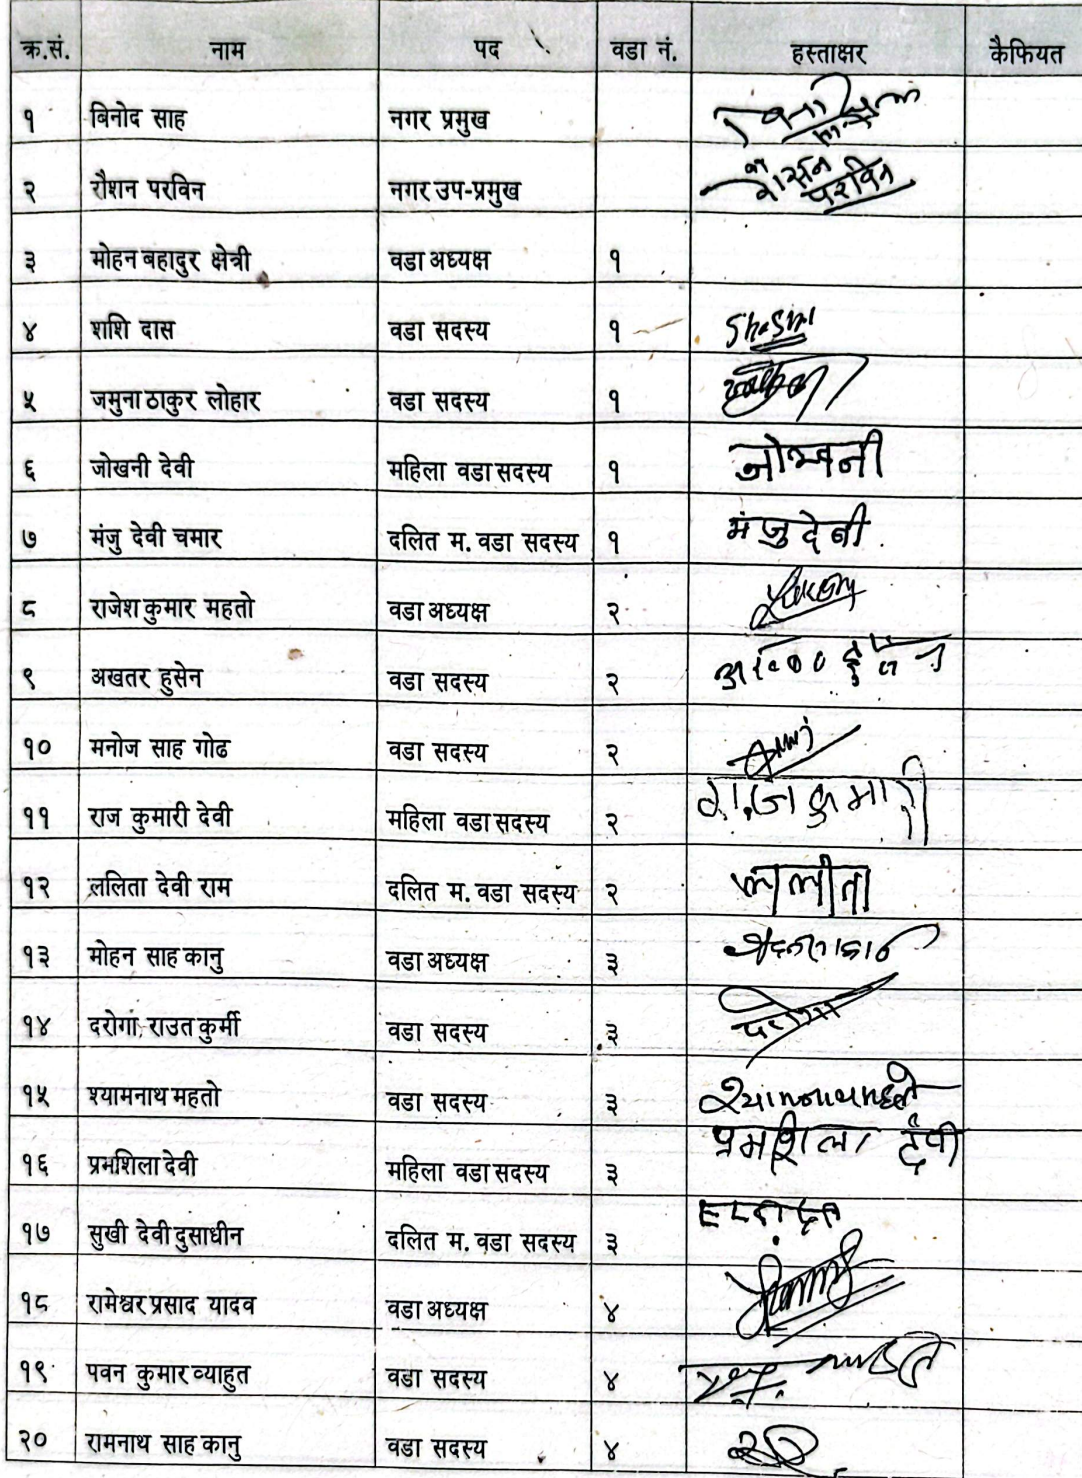 क्र.सं. नाम पद वडा नं. हस्ताक्षर कैफियत
१ बिनोद साह नगर प्रमुख
२ रौशन परविन नगर उप-प्रमुख रौसन परविन
३ मोहन बहादुर क्षेत्री वडा अध्यक्ष १
४ शशि दास वडा सदस्य १ Shashi
५ जमुना ठाकुर लोहार वडा सदस्य १
६ जोखनी देवी महिला वडा सदस्य १ जोखनी
७ मंजु देवी चमार दलित म. वडा सदस्य १ मंजु देवी
८ राजेश कुमार महतो वडा अध्यक्ष २
९ अखतर हुसेन वडा सदस्य २
१० मनोज साह गोढ वडा सदस्य २
११ राज कुमारी देवी महिला वडा सदस्य २ राज कुमारी
१२ ललिता देवी राम दलित म. वडा सदस्य २ ललीता
१३ मोहन साह कानु वडा अध्यक्ष ३
१४ दरोगा राउत कुर्मी वडा सदस्य ३
१५ श्यामनाथ महतो वडा सदस्य ३ श्यामनाथ महतो
१६ प्रमशिला देवी महिला वडा सदस्य ३ प्रमशिला देवी
१७ सुखी देवी दुसाधीन दलित म. वडा सदस्य ३
१८ रामेश्वर प्रसाद यादव वडा अध्यक्ष ४
१९ पवन कुमार व्याहुत वडा सदस्य ४
२० रामनाथ साह कानु वडा सदस्य ४